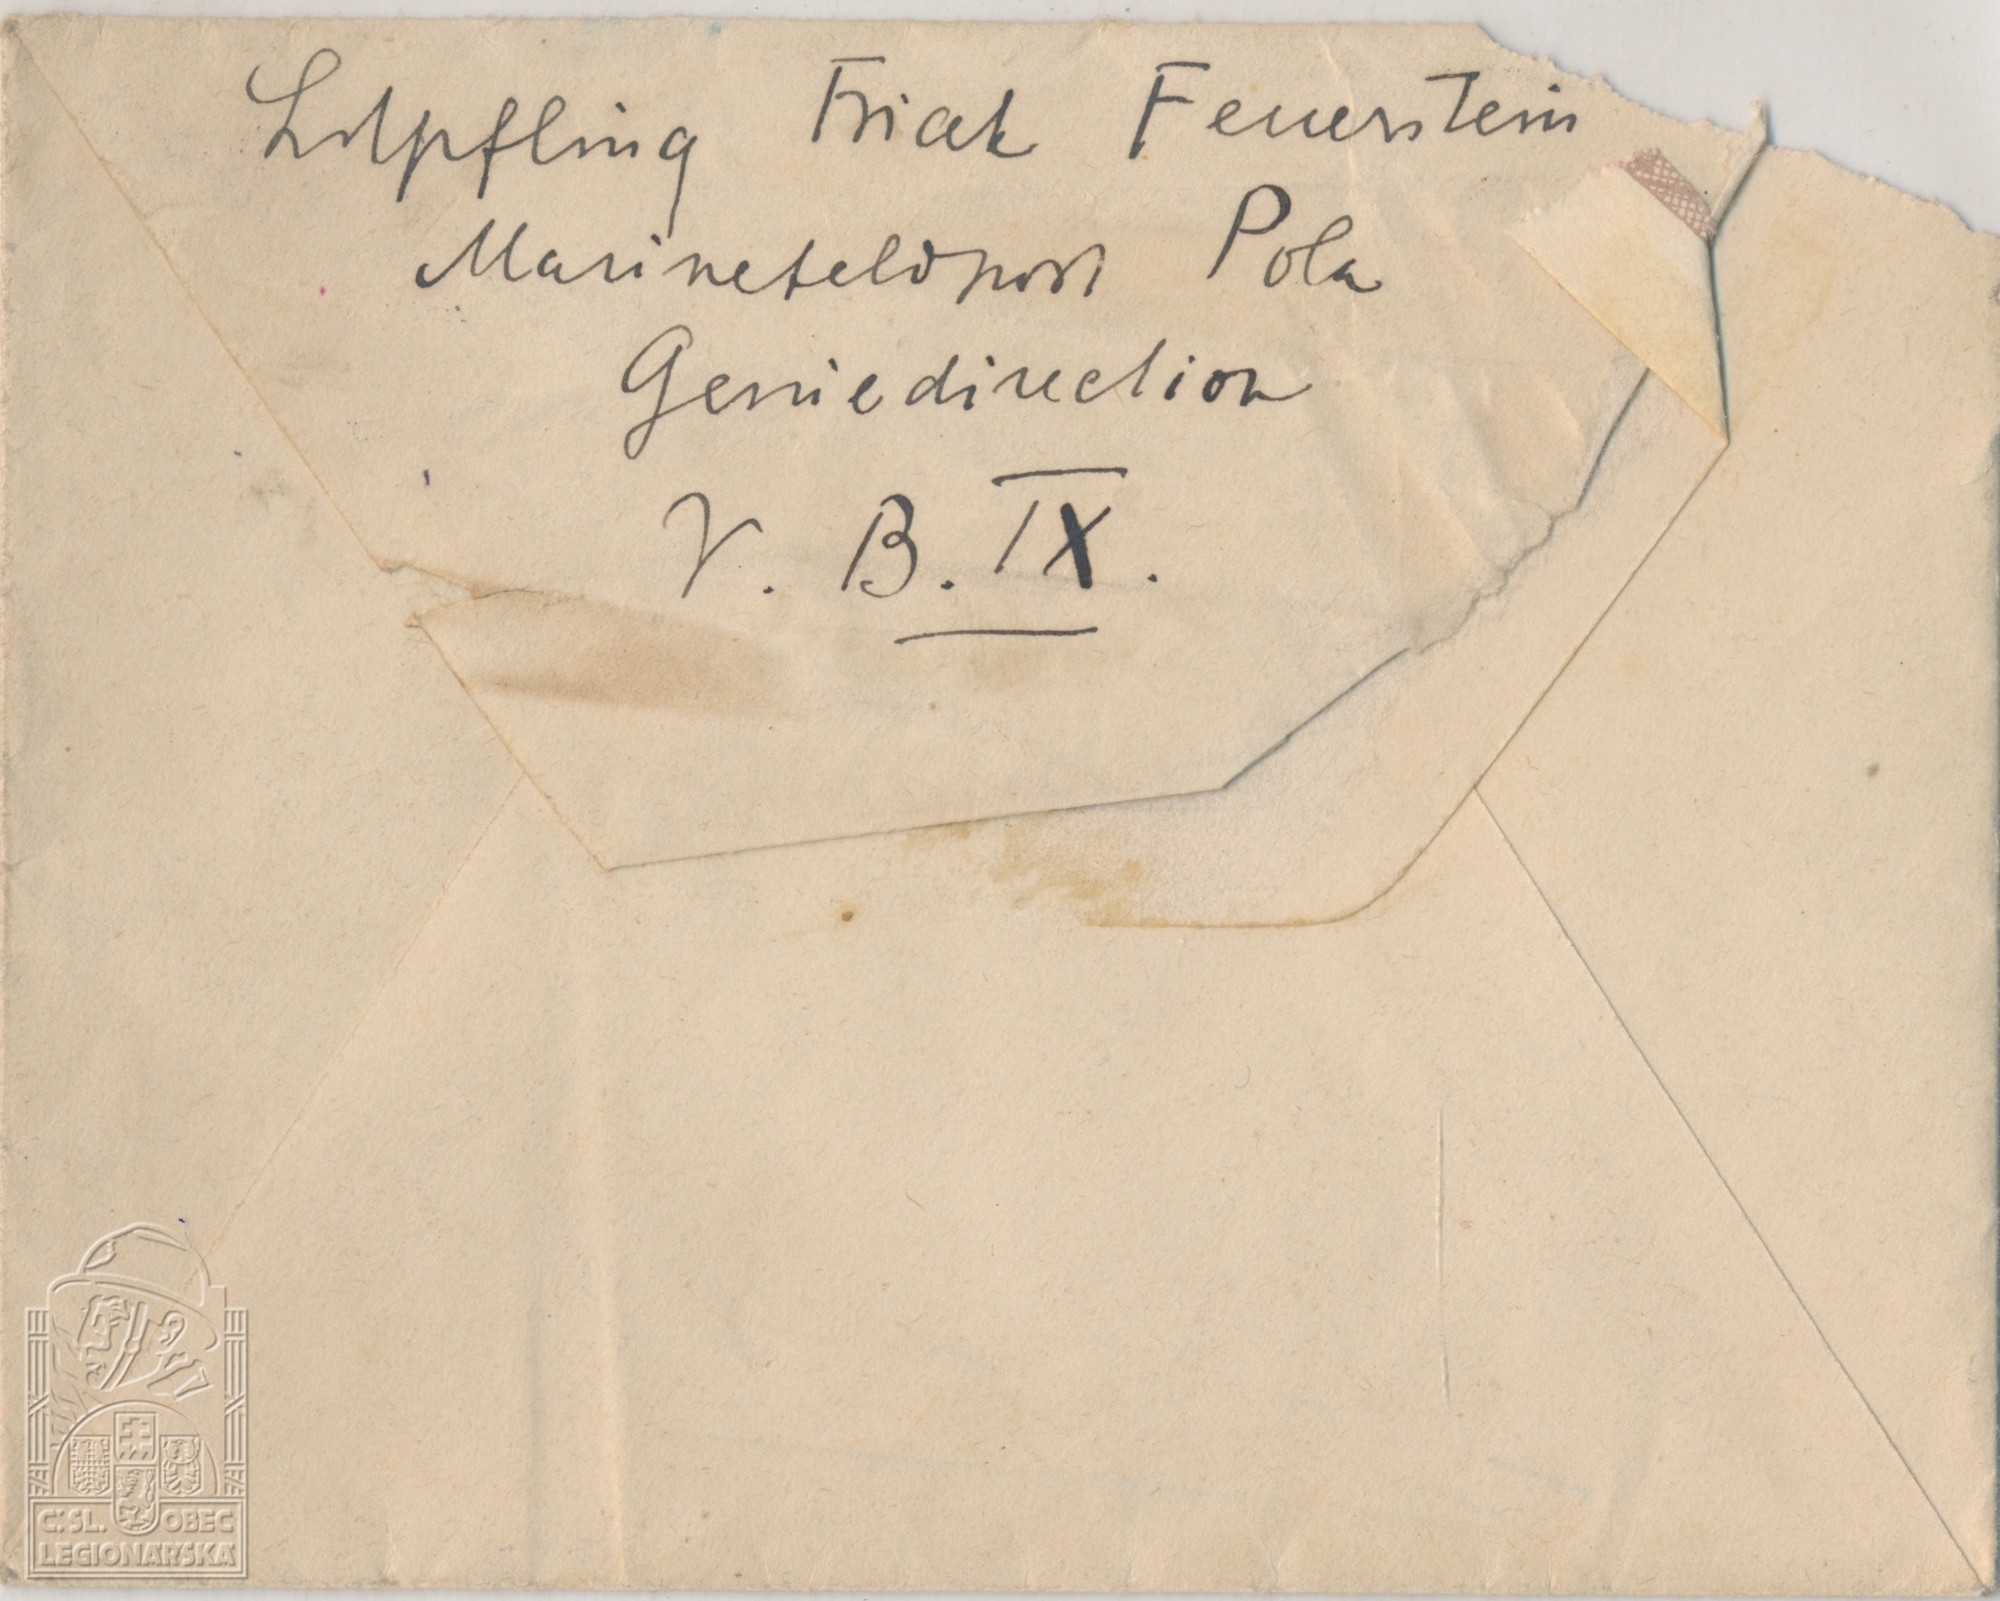 Friak Feuerstein
Marinefeldpost Pola
Geniedirection
V. B. IX.
Č.SL. OBEC
LEGIONÁŘSKÁ